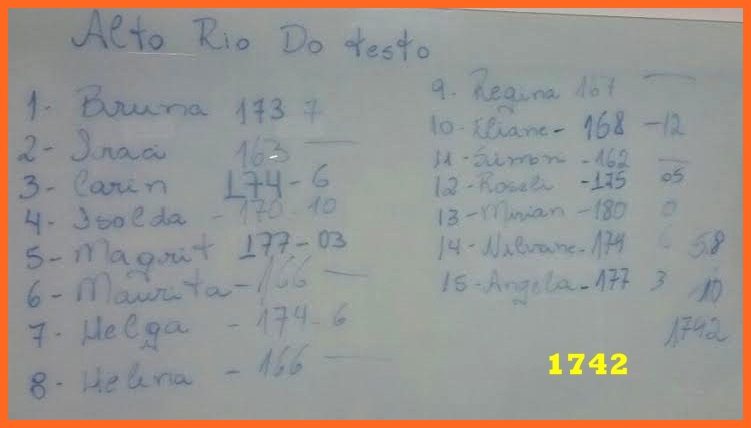 Alto Rio Do testo
1- Bruna 173 7
2- Iraci 163 —
3- Carin 174-6
4- Isolda - 170-10
5- Magrit 177-03
6- Maurita - 166 —
7- Helga - 174-6
8- Helena - 166 —
9- Regina 167 —
10- Eliane - 168 -12
11- Simoni - 162 —
12- Roseli - 175 05
13- Mirian - 180 0
14- Nilvane - 174 6
15- Angela - 177 3
58
10
1742
1742